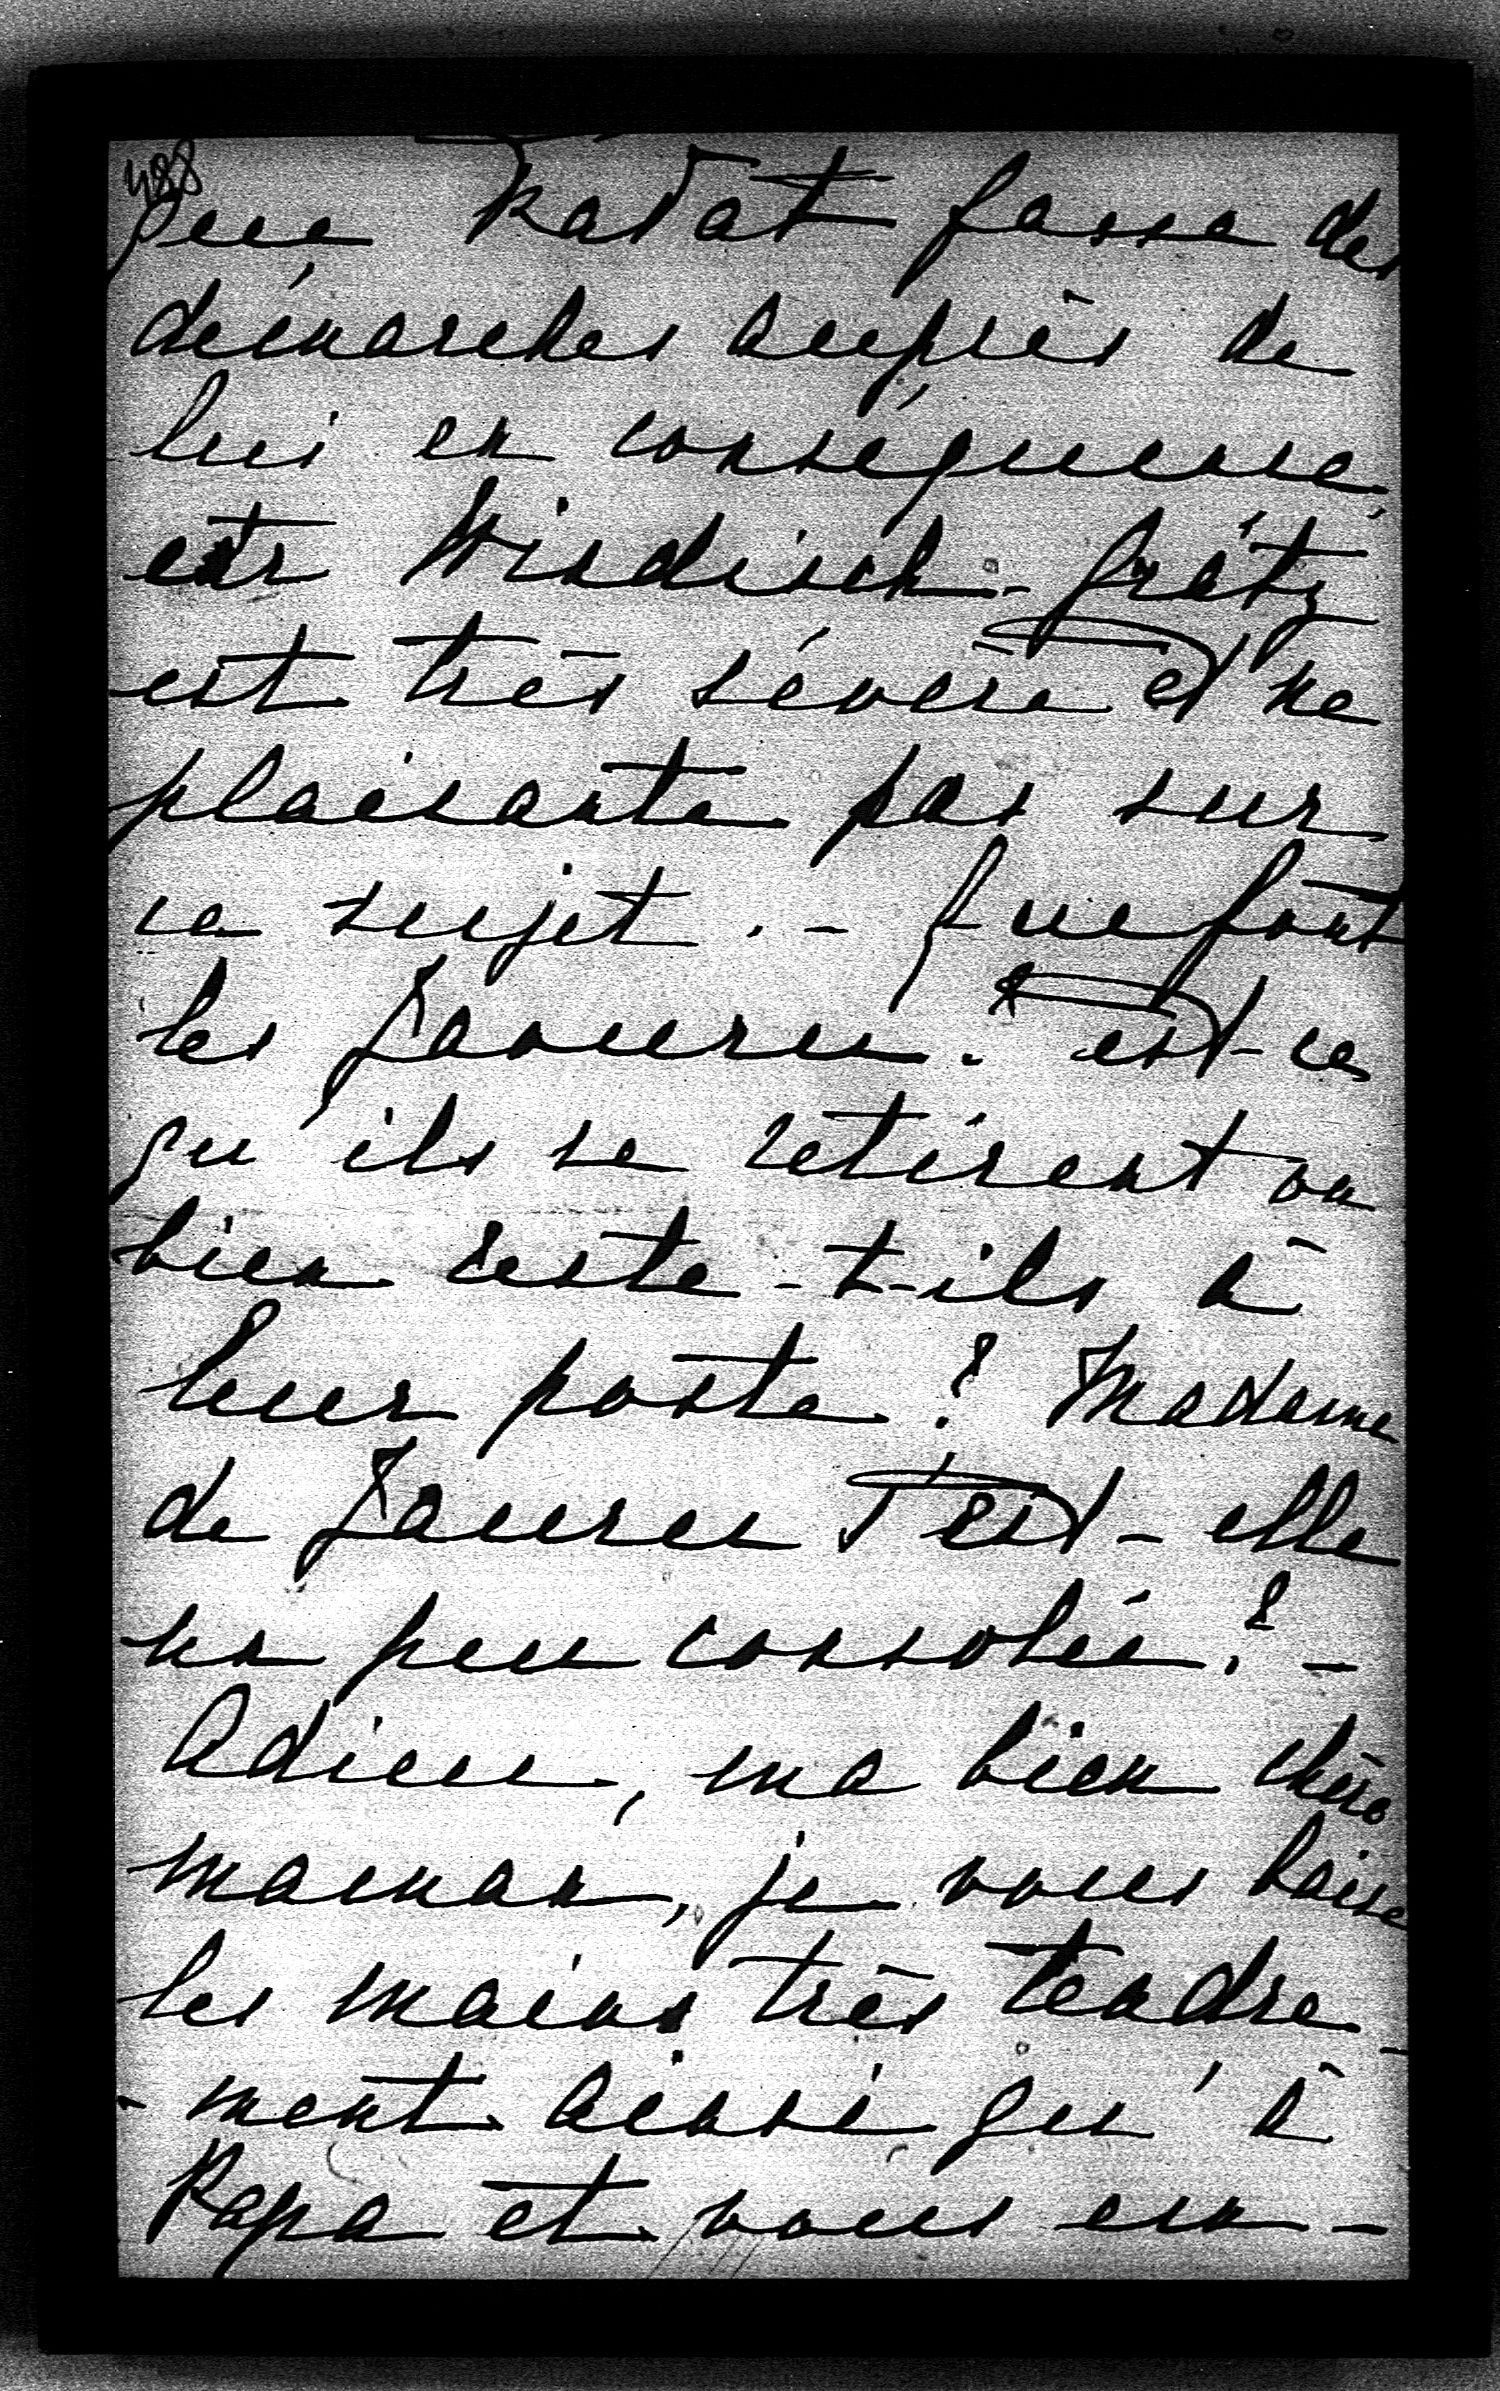 488
que Kadat fasse des
démarches auprès de
lui en conséquence,
car Windisch-Grätz
est très sévère et ne
plaisante pas sur
ce sujet. - Que font
les Jaurès? est-ce
qu'ils se retirent ou
bien reste-t-ils à
leur poste? Madame
de Jaurès est-elle
un peu consolée? -
Adieu, ma bien chère
maman, je vous baise
les mains très tendre-
-ment ainsi qu'à
Papa et vous em-